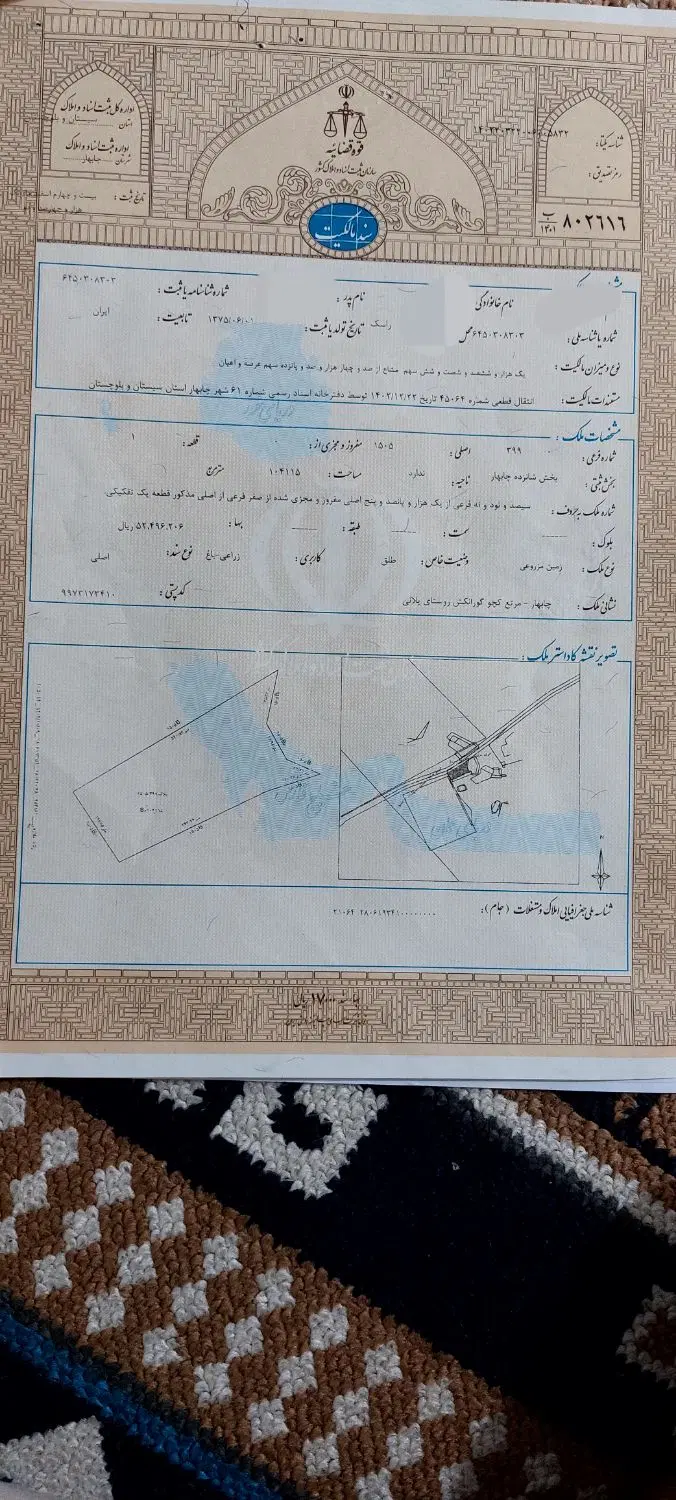 اداره کل ثبت اسناد و املاک
استان سیستان و
اداره ثبت اسناد و املاک
شهرستان چابهار
تاریخ ثبت : بیست و چهارم اسفند
قوه قضائیه
سازمان ثبت اسناد و املاک کشور
سند مالکیت
شناسه یکتا :
رمز تصدیق :
ب ۱۴۰۱ ۸۰۲۶۱۶
نام خانوادگی نام پدر : شماره شناسنامه یا ثبت : ۶۴۵۰۳۰۸۳۰۳
شماره یا شناسه ملی : ۶۴۵۰۳۰۸۳۰۳ محل راسک تاریخ تولد یا ثبت : ۱۳۷۵/۰۶/۰۱ تابعیت : ایران
نوع و میزان مالکیت : یک هزار و ششصد و شصت و شش سهم مشاع از صد و چهار هزار و صد و پانزده سهم عرصه و اعیان
مستندات مالکیت : انتقال قطعی شماره ۴۵۰۶۴ تاریخ ۱۴۰۲/۱۲/۲۲ توسط دفترخانه اسناد رسمی شماره ۶۱ شهر چابهار استان سیستان و بلوچستان
مشخصات ملک :
شماره فرعی : ۳۹۹ اصلی : ۱۵۰۵ مفروز و مجزی از : ۰ قطعه : ۱
بخش ثبتی : بخش شانزده چابهار ناحیه : ندارد مساحت : ۱۰۴۱۱۵ مترمربع
شماره ملک بحروف : سیصد و نود و نه فرعی از یک هزار و پانصد و پنج اصلی مفروز و مجزی شده از صفر فرعی از اصلی مذکور قطعه یک تفکیکی.
بلوک : سمت : طبقه : بها : ۵۲,۴۹۶,۲۰۶ ریال
نوع ملک : زمین مزروعی وضعیت خاص : طلق کاربری : زراعی-باغ نوع سند : اصلی
نشانی ملک : چابهار - مرتع کچو گورانکش روستای بلانی کد پستی : ۹۹۷۳۱۷۳۴۱۰
تصویر نقشه کاداستر ملک :
شناسه ملی جغرافیایی املاک و مستغلات (جام) :
بها سند ۱۷۰۰۰۰ ریال